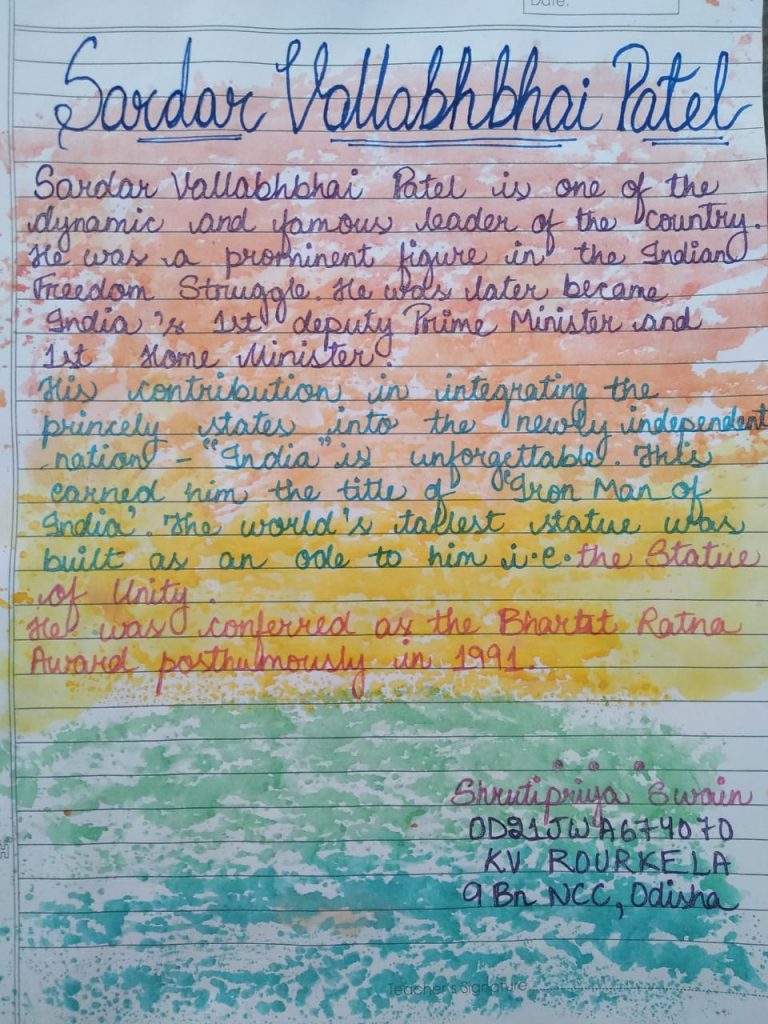 Date:
Sardar Vallabhbhai Patel
Sardar Vallabhbhai Patel is one of the
dynamic and famous leader of the country.
He was a prominent figure in the Indian
Freedom Struggle. He was later became
India's 1st deputy Prime Minister and
1st Home Minister.
His contribution in integrating the
princely states into the newly independent
nation - "India" is unforgettable. This
earned him the title of "Iron Man of
India'. The world's tallest statue was
built as an ode to him i.e. the Statue
of Unity.
He was conferred as the Bharat Ratna
Award posthumously in 1991.
Shrutipriya Swain
OD21JWA674070
KV ROURKELA
9 Bn NCC, Odisha
Teacher's Signature